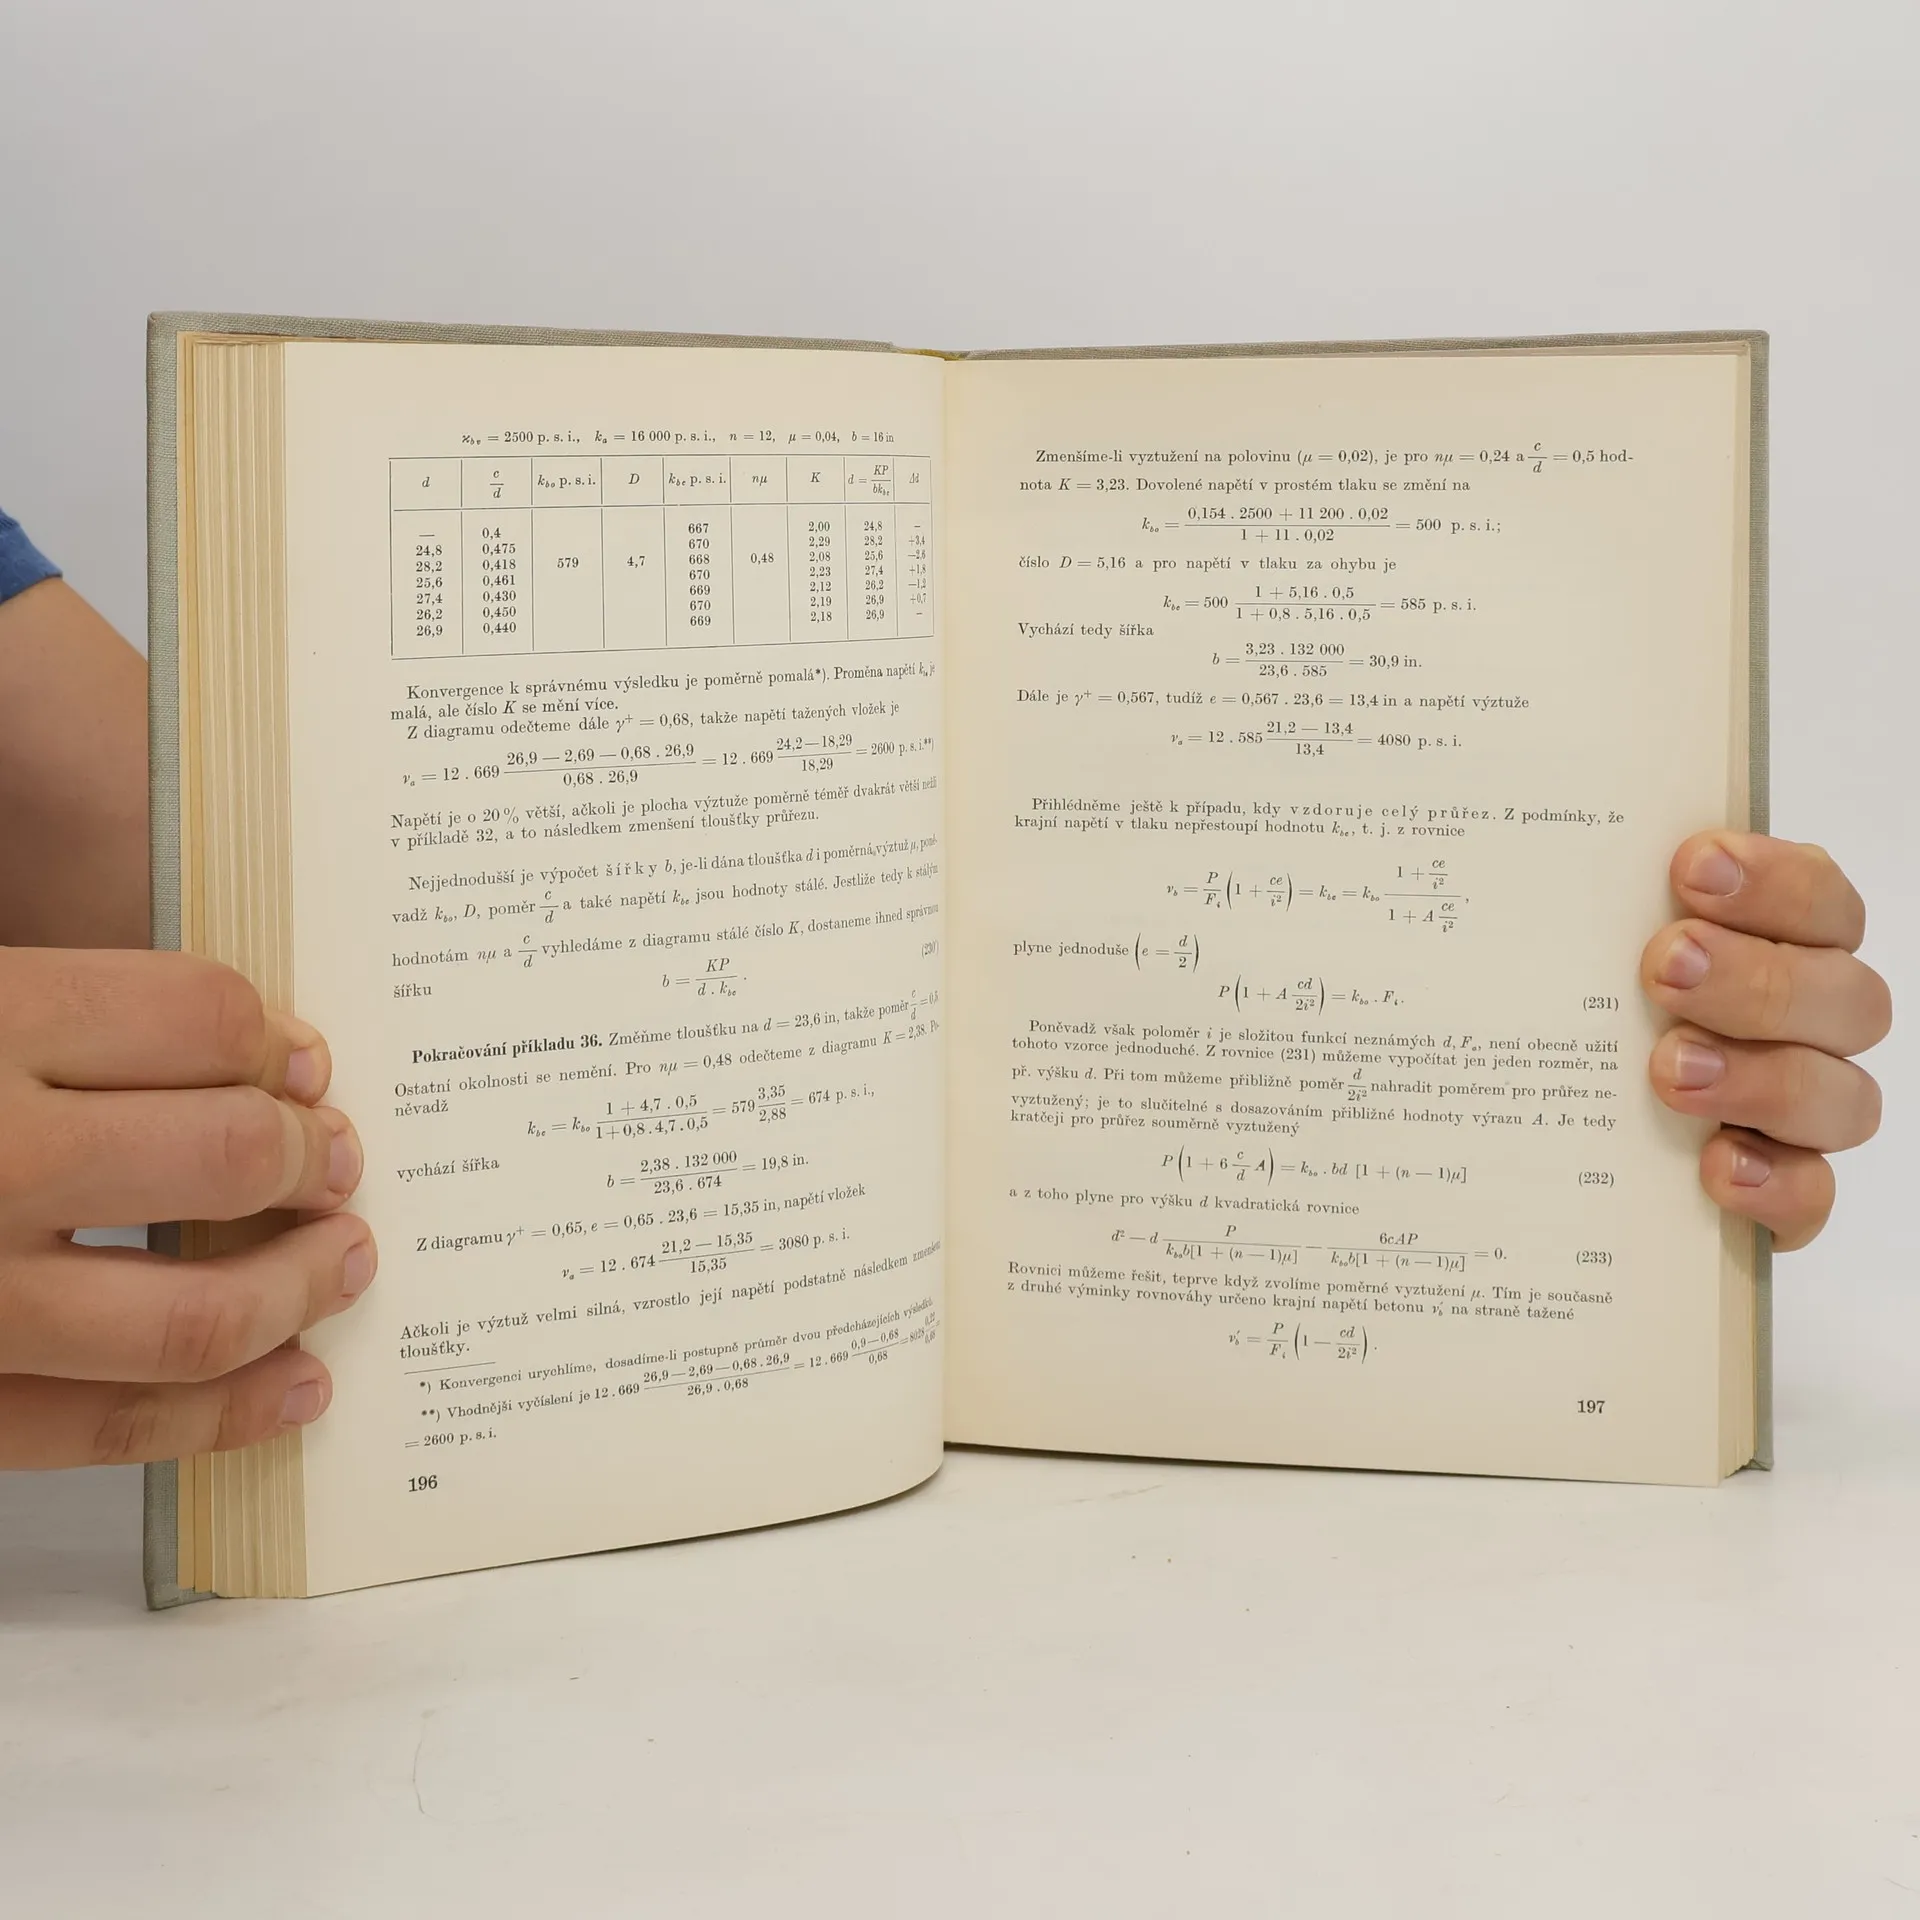 ϰbe = 2500 p. s. i., ka = 16 000 p. s. i., n = 12, μ = 0,04, b = 16 in
d | c/d | kbo p. s. i. | D | kbe p. s. i. | nμ | K | d = KP/bkbe | Δd
— | 0,4 | 579 | 4,7 | 667 | 0,48 | 2,00 | 24,8 | –
24,8 | 0,475 | 670 | 2,29 | 28,2 | +3,4
28,2 | 0,418 | 668 | 2,08 | 25,6 | —2,6
25,6 | 0,461 | 670 | 2,23 | 27,4 | +1,8
27,4 | 0,430 | 669 | 2,12 | 26,2 | —1,2
26,2 | 0,450 | 670 | 2,19 | 26,9 | +0,7
26,9 | 0,440 | 669 | 2,18 | 26,9 | –
Konvergence k správnému výsledku je poměrně pomalá*). Proměna napětí kbe je
malá, ale číslo K se mění více.
Z diagramu odečteme dále γ+ = 0,68, takže napětí tažených vložek je
νa = 12 . 669 (26,9 — 2,69 — 0,68 . 26,9)/(0,68 . 26,9) = 12 . 669 (24,2—18,29)/18,29 = 2600 p. s. i.**)
Napětí je o 20 % větší, ačkoli je plocha výztuže poměrně téměř dvakrát větší nežli
v příkladě 32, a to následkem zmenšení tloušťky průřezu.
Nejjednodušší je výpočet šířky b, je-li dána tloušťka d i poměrná výztuž μ, poně-
vadž kbo, D, poměr c/d a také napětí kbe jsou hodnoty stálé. Jestliže tedy k stálým
hodnotám nμ a c/d vyhledáme z diagramu stálé číslo K, dostaneme ihned správnou
šířku
b = KP/(d . kbe) . (230)
Pokračování příkladu 36. Změňme tloušťku na d = 23,6 in, takže poměr c/d = 0,5
Ostatní okolnosti se nemění. Pro nμ = 0,48 odečteme z diagramu K = 2,38. Po-
něvadž
kbe = kbo (1 + 4,7 . 0,5)/(1+0,8.4,7.0,5) = 579 3,35/2,88 = 674 p. s. i.,
vychází šířka
b = (2,38 . 132 000)/(23,6 . 674) = 19,8 in.
Z diagramu γ+ = 0,65, e = 0,65 . 23,6 = 15,35 in, napětí vložek
νa = 12 . 674 (21,2 — 15,35)/15,35 = 3080 p. s. i.
Ačkoli je výztuž velmi silná, vzrostlo její napětí podstatně následkem zmenšení
tloušťky.
*) Konvergenci urychlíme, dosadíme-li postupně průměr dvou předcházejících výsledků.
**) Vhodnější vyčíslení je 12 . 669 (26,9 — 2,69 — 0,68 . 26,9)/(26,9 . 0,68) = 12 . 669 (0,9—0,68)/0,68 = 8028 0,22/0,68 =
= 2600 p. s. i.
196
Zmenšíme-li vyztužení na polovinu (μ = 0,02), je pro nμ = 0,24 a c/d = 0,5 hod-
nota K = 3,23. Dovolené napětí v prostém tlaku se změní na
kbo = (0,154 . 2500 + 11 200 . 0,02)/(1 + 11 . 0,02) = 500 p. s. i.;
číslo D = 5,16 a pro napětí v tlaku za ohybu je
kbe = 500 (1 + 5,16 . 0,5)/(1 + 0,8 . 5,16 . 0,5) = 585 p. s. i.
Vychází tedy šířka
b = (3,23 . 132 000)/(23,6 . 585) = 30,9 in.
Dále je γ+ = 0,567, tudíž e = 0,567 . 23,6 = 13,4 in a napětí výztuže
νa = 12 . 585 (21,2 — 13,4)/13,4 = 4080 p. s. i.
Přihlédněme ještě k případu, kdy vzdoruje celý průřez. Z podmínky, že
krajní napětí v tlaku nepřestoupí hodnotu kbe, t. j. z rovnice
νb = P/Fi (1 + ce/i²) = kbe = kbo (1 + ce/i²)/(1 + A ce/i²) ,
plyne jednoduše (e = d/2)
P (1 + A cd/2i²) = kbo . Fi. (231)
Poněvadž však poloměr i je složitou funkcí neznámých d, Fa, není obecně užití
tohoto vzorce jednoduché. Z rovnice (231) můžeme vypočítat jen jeden rozměr, na
př. výšku d. Při tom můžeme přibližně poměr d/2i² nahradit poměrem pro průřez ne-
vyztužený; je to slučitelné s dosazováním přibližné hodnoty výrazu A. Je tedy
kratčeji pro průřez souměrně vyztužený
P (1 + 6 c/d A) = kbo . bd [1 + (n — 1)μ] (232)
a z toho plyne pro výšku d kvadratická rovnice
d² — d P/(kbob[1 + (n — 1)μ]) — 6cAP/(kbob[1 + (n — 1)μ]) = 0. (233)
Rovnici můžeme řešit, teprve když zvolíme poměrné vyztužení μ. Tím je současně
z druhé výminky rovnováhy určeno krajní napětí betonu ν′b na straně tažené
ν′b = P/Fi (1 — cd/2i²) .
197